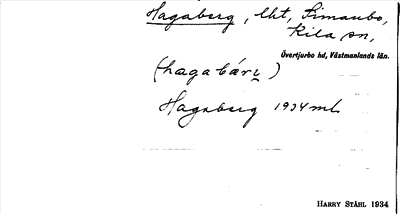 Hagaberg, lht, Simanbo,
Kila sn,
Övertjurbo hd, Västmanlands län.
(hagabärɩ)
Hagaberg 1934 ml.
HARRY STÅHL 1934